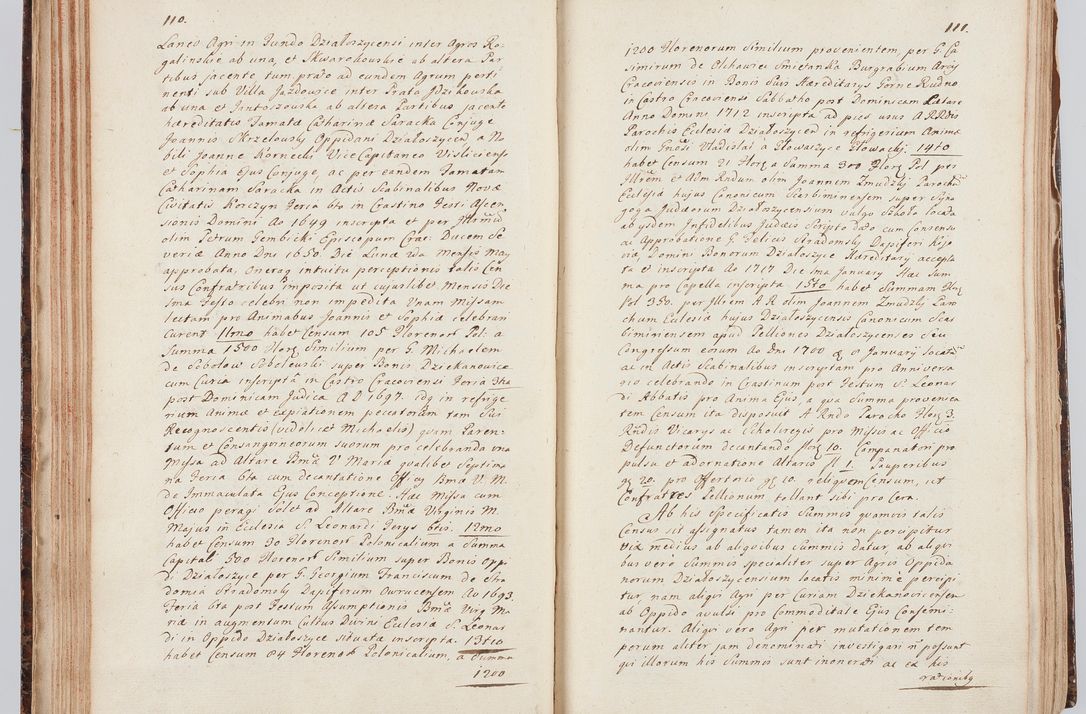 110.
Laneo Agri in Fundo Działoszycensi inter Agros Ro-
galinskie ab una, et Skwarchowskie ab altera Par
tibus jacente, tum prato ad eundem Agrum perti
nenti sub Villa Jazdowice inter Prata Jdzikowska
ab una et Jantoszowska ab altera Partibus jacente
hæreditatis Famatæ Catharinæ Saracka Conjuge
Joannis Skrzelowsky Oppidani Działoszyced a No
bili Joanne Kornecki Vice Capitaneo Visliciensi
et Sophia Ejus Conjuge, ac per eandem Famatam
Catharinam Saracka in Actis Scabinalibus Novæ
Civitatis Korczyn Feria 6ta in Crastino Festi Ascen
sionis Domini Ao 1649 inscripta et per
olim Petrum Gembicki Episcopum Crac: Ducem Se
veriæ Anno Dni 1650. Die Lunæ 2da Mensis May
approbata, Onerag intuitu perceptionis talis Cen
sus Confratribus imposita ut cujuslibet Mensis Die
1ma Festo celebri non impedita Unam Missam
lectam pro Animabus Joannis et Sophiæ celebrari
curent 11mo habet Censum 105 Florenor Pol: a
Summa 1500 Flor Similium per G. Michaelem
de Sobolow Sobolewski super Bonis Dziekanowice
cum Curia inscripta in Castro Cracoviensi Feria 3tia
post Dominicam Judica A D 1697. idq in refrige
rium Animæ et expiationem peccatorum tam Sui
Recognoscentis (videlicet Michaelis) quam Paren-
tum et Consanguineorum suorum pro celebranda una
Missa ad Altare Bmæ V Mariæ qualibet Septima
na Feria 6ta cum decantatione Officy Bmæ V. M.
de Immaculata Ejus Conceptione. Hæc Missa cum
Officio peragi Solet ad Altare Bmæ Virginis M.
Majus in Ecclesia S. Leonardi Ferys 6tis. 12mo
habet Censum 30 Florenor Polonicalium a Summa
Capital 500 Florenor Similium super Bonis opp
di Działoszyce per G. Georgium Franciscum de Stra
domia Stradomsky Dapiferum Owrucensem Ao 1693.
Feria 6ta post Festum Assumptionis Bmæ Virg Ma
riæ in augmentum Cultus Divini Ecclesiæ S. Leonar
di in Oppido Działoszyce situatæ inscripta. 13tio
habet Censum 84 Florenor Polonicalium, a Summa
1200
111.
1200 Florenorum Similium provenientem, per G. Ca
simirum de Olchawice Smietanka Burgrabium Arcis
Cracoviensis in Bonis Suis Hæreditarys Gorne Rudno
in Castro Cracoviensi Sabbatho post Dominicam Lætare
Anno Domini 1712 inscripta ad pios usus A RRdis
Parochis Ecclesiæ Działoszyced in refrigerium Animæ
olim Gnosi Vladislai a Słowaszyce Słowacky. 14to
habet Censum 21 Flor a Summa 300 Flor Pol per
Illrem et Adm Rndum olim Joannem Zmudzky Paroch
Ecclesiæ hujus Canonicum Scarbimiriensem super Syna
goga Judæorum Działoszycensium vulgo Szkoło locata
ab ysdem Infidelibus Judæis Scripto dato cum Consensu
ac Approbatione G. Felicis Stradomsky Dapiferi Kijo
viæ, Domini Bonorum Działoszyce Hæreditary accepta
ta et inscripta Ao 1717 Die 1ma January Hæc Sum
ma pro Capella inscripta 15to habet Summam Flor
Pol 350. per Illrem A. R olim Joannem Zmudzky Paro
chum Ecclesiæ hujus Działoszycensis Canonicum Scar
bimiriensem apud Pelliones Działoszycenses Seu
Congressum eorum Ao Dni 1700 8 January locata
ac in Actis Scabinalibus inscriptam pro Anniversa
rio celebrando in Crastinum post Festum S. Leonar
di Abbatis pro Anima Ejus, a qua Summa provenien
tem Censum ita disposuit A Rndo Parocho Flor 3.
Rndis Vicarys ac Scholiregis pro Missis ac Officio
Defunctorum decantando Flor 10. Campanatori pro
pulsu et adornatione Altaris fl 1. Pauperibus
gr 20. pro Offertorio gr 10. reliquem Censum, ut
Confratres Pellionum tollant sibi pro Cera.
Ab his Specificatis Summis quamvis talis
Census sit assignatus tamen ita non percipitur
viæ medius ab aliquibus Summis datur, ab aliqui
bus vero Summis specialiter super Agris Oppida
norum Działoszycensium locatis minime percipi
tur, nam aliqui Agri per Curiam Dziekanovicensem
ab Oppido avulsi pro Commoditate Ejus Conservi:
nantur. Aliqui vero Agri per mutationem tem
porum aliter jam denominati investigari non possunt
qui illorum his Summis sunt inonerati ac ex his
rationibq